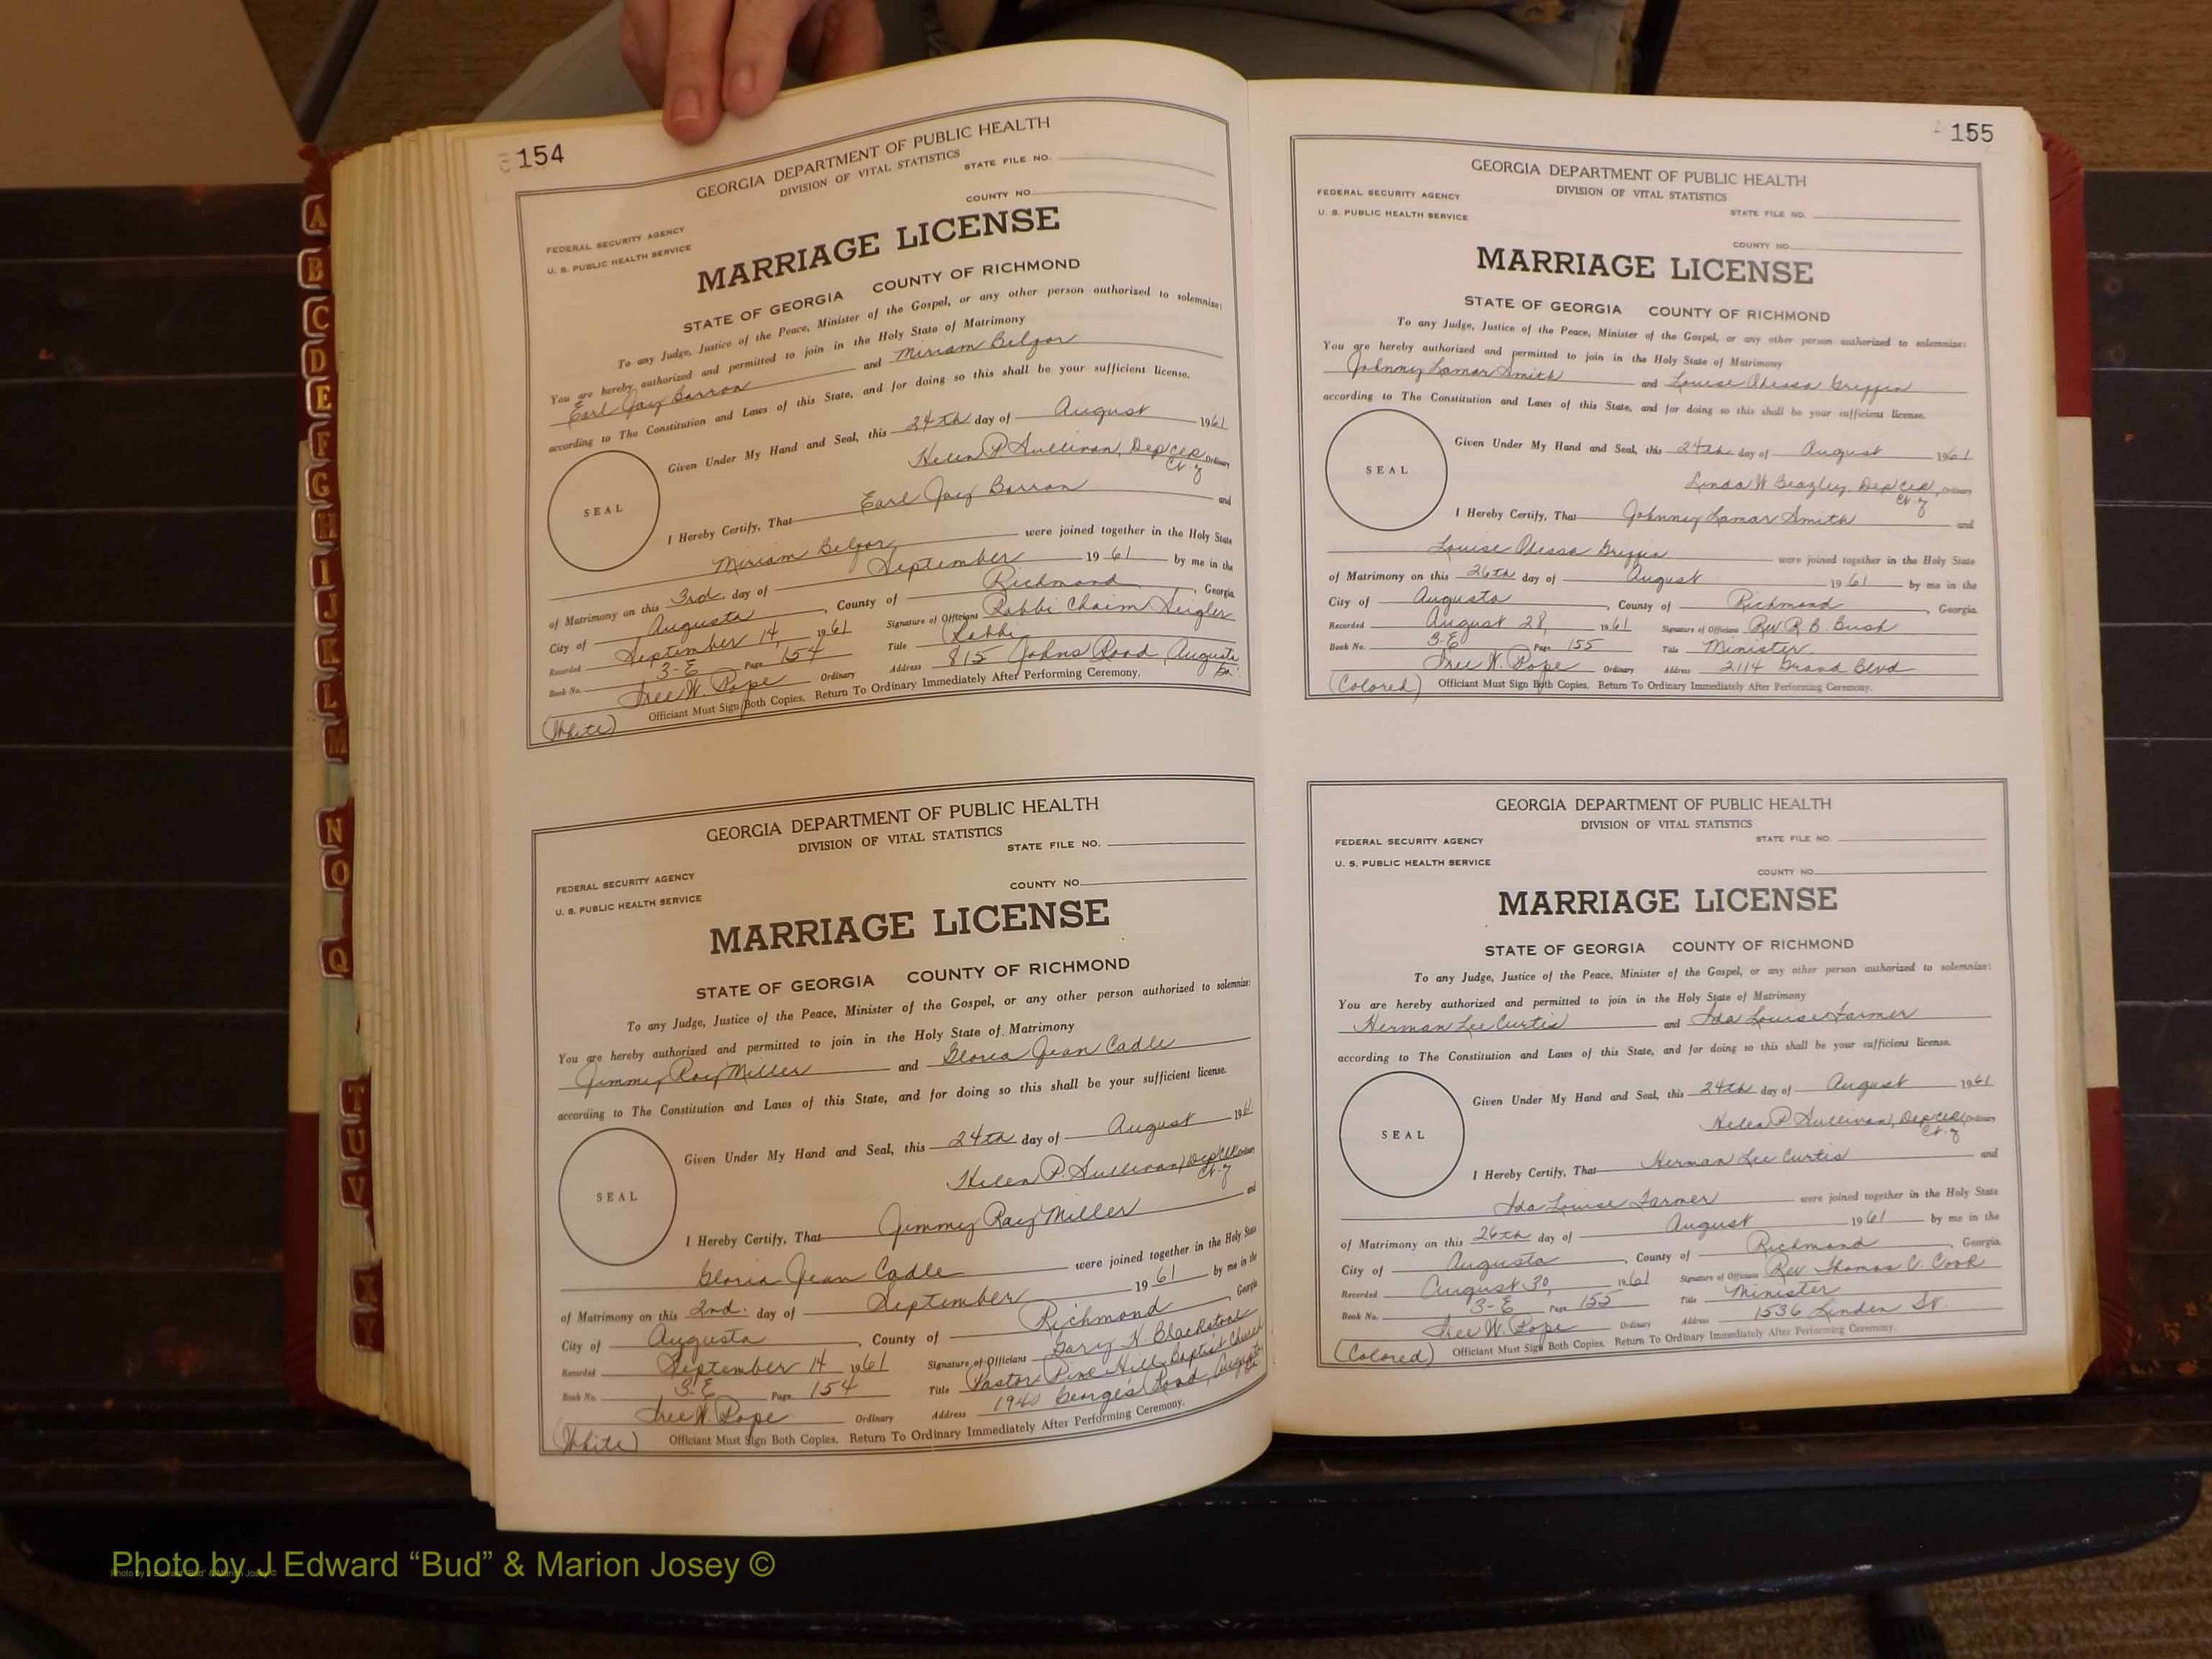 A
B
C
D
E
F
G
H
I
J
K
L
M
N
O
Q
T
U
V
X
Y
154
GEORGIA DEPARTMENT OF PUBLIC HEALTH
DIVISION OF VITAL STATISTICS
STATE FILE NO.
COUNTY NO.
FEDERAL SECURITY AGENCY
U. S. PUBLIC HEALTH SERVICE
MARRIAGE LICENSE
STATE OF GEORGIA COUNTY OF RICHMOND
To any Judge, Justice of the Peace, Minister of the Gospel, or any other person authorized to solemnize:
You are hereby authorized and permitted to join in the Holy State of Matrimony
Earl Jay Barron and Miriam Belgor
according to The Constitution and Laws of this State, and for doing so this shall be your sufficient license.
Given Under My Hand and Seal, this 24th day of August 1961
Helen P. Sullivan, Dep Clk Ordinary
Ct. y
SEAL
I Hereby Certify, That Earl Jay Barron and
Miriam Belgor were joined together in the Holy State
of Matrimony on this 3rd. day of September 19 61 by me in the
City of Augusta, County of Richmond, Georgia
Recorded September 14, 1961 Signature of Officiant Rabbi Chaim Seigler
Book No. 3-E Page 154 Title Rabbi
Tree W. Pope Ordinary Address 815 Johns Road, Augusta, Ga.
(White) Officiant Must Sign Both Copies. Return To Ordinary Immediately After Performing Ceremony.
GEORGIA DEPARTMENT OF PUBLIC HEALTH
DIVISION OF VITAL STATISTICS
STATE FILE NO.
COUNTY NO.
FEDERAL SECURITY AGENCY
U. S. PUBLIC HEALTH SERVICE
MARRIAGE LICENSE
STATE OF GEORGIA COUNTY OF RICHMOND
To any Judge, Justice of the Peace, Minister of the Gospel, or any other person authorized to solemnize:
You are hereby authorized and permitted to join in the Holy State of Matrimony
Jimmy Ray Miller and Gloria Jean Cadle
according to The Constitution and Laws of this State, and for doing so this shall be your sufficient license.
Given Under My Hand and Seal, this 24th day of August 1961
Helen P. Sullivan, Dep Clk Ordinary
Ct. y
SEAL
I Hereby Certify, That Jimmy Ray Miller and
Gloria Jean Cadle were joined together in the Holy State
of Matrimony on this 2nd. day of September 19 61 by me in the
City of Augusta, County of Richmond, Georgia
Recorded September 14 1961 Signature of Officiant Gary H. Blackstone
Book No. 3-E Page 154 Title Pastor Pine Hill Baptist Church
Tree W. Pope Ordinary Address 1940 George's Road, Augusta Ga
(White) Officiant Must Sign Both Copies. Return To Ordinary Immediately After Performing Ceremony.
155
GEORGIA DEPARTMENT OF PUBLIC HEALTH
DIVISION OF VITAL STATISTICS
FEDERAL SECURITY AGENCY
U. S. PUBLIC HEALTH SERVICE
STATE FILE NO.
COUNTY NO.
MARRIAGE LICENSE
STATE OF GEORGIA COUNTY OF RICHMOND
To any Judge, Justice of the Peace, Minister of the Gospel, or any other person authorized to solemnize:
You are hereby authorized and permitted to join in the Holy State of Matrimony
Johnny Lamar Smith and Louise Odessa Griffin
according to The Constitution and Laws of this State, and for doing so this shall be your sufficient license.
Given Under My Hand and Seal, this 24th day of August 1961
Linda W Beazley, Dep Clk, Ordinary
Ct. y
SEAL
I Hereby Certify, That Johnny Lamar Smith and
Louise Odessa Griffin were joined together in the Holy State
of Matrimony on this 26th day of August 19 61 by me in the
City of Augusta, County of Richmond, Georgia.
Recorded August 28, 1961 Signature of Officiant Rev R. B. Bush
Book No. 3-E Page 155 Title Minister
Tree W. Pope Ordinary Address 2114 Grand Blvd
(Colored) Officiant Must Sign Both Copies. Return To Ordinary Immediately After Performing Ceremony.
GEORGIA DEPARTMENT OF PUBLIC HEALTH
DIVISION OF VITAL STATISTICS
FEDERAL SECURITY AGENCY
STATE FILE NO.
U. S. PUBLIC HEALTH SERVICE
COUNTY NO.
MARRIAGE LICENSE
STATE OF GEORGIA COUNTY OF RICHMOND
To any Judge, Justice of the Peace, Minister of the Gospel, or any other person authorized to solemnize:
You are hereby authorized and permitted to join in the Holy State of Matrimony
Herman Lee Curtis and Ida Louise Farmer
according to The Constitution and Laws of this State, and for doing so this shall be your sufficient license.
Given Under My Hand and Seal, this 24th day of August 1961
Helen P. Sullivan, Dep Clk, Ordinary
Ct. y
SEAL
I Hereby Certify, That Herman Lee Curtis and
Ida Louise Farmer were joined together in the Holy State
of Matrimony on this 26th day of August 19 61 by me in the
City of Augusta, County of Richmond, Georgia.
Recorded August 30, 1961 Signature of Officiant Rev Thomas C. Cook
Book No. 3-E Page 155 Title Minister
Tree W. Pope Ordinary Address 1536 Linden St.
(Colored) Officiant Must Sign Both Copies. Return To Ordinary Immediately After Performing Ceremony.
Photo by J Edward “Bud” & Marion Josey ©
Photo by J Edward "Bud" & Marion Josey ©